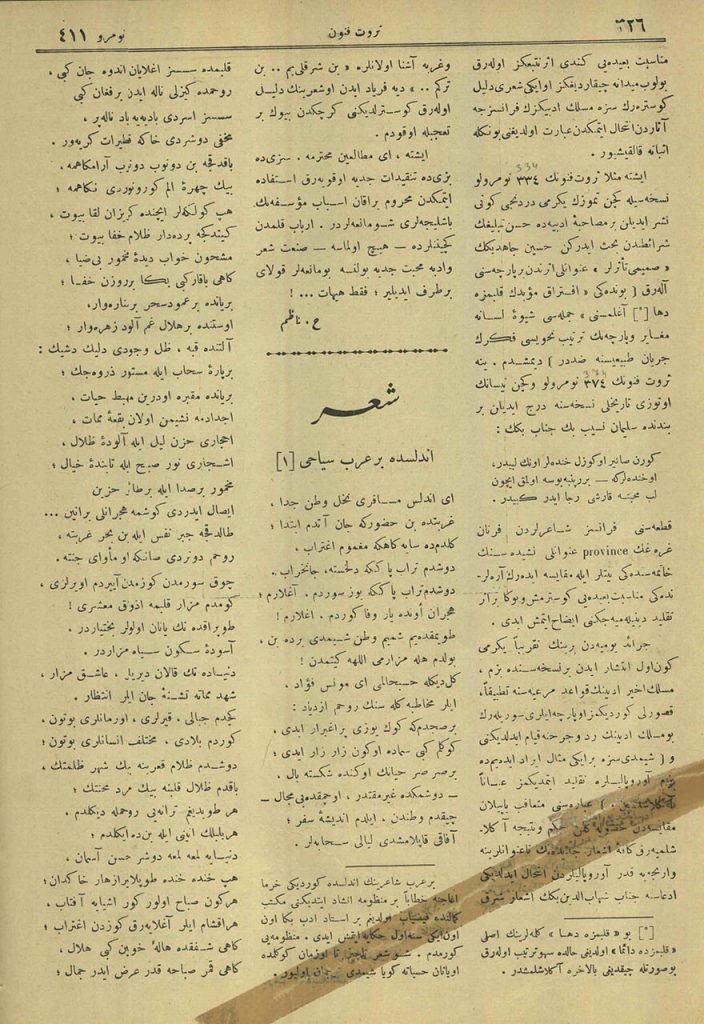 ٣٢٦
ثروت فنون
نومرو ٤١١
مناسبت بعیده‌یی کندی اثر تتبعکز اوله‌رق
بولوب میدانه چیقاردیغکز اوایکی شعری دلیل
کوستره‌رك سزه مسلك ادبیکزك فرانسزجه
آثاردن انتحال ایتمکدن عبارت اولدیغنی بونکله
اثباته قالقیشیور .
ایشته مثلا ثروت فنونك ٣٣٤ نومرولو
نسخه‌سیله کچن تموزك یکرمی دردنجی کونی
نشر ایدیلن بر مصاحبهٔ ادبیه‌ده حسن تبلیغك
شرائطندن بحث ایدرکن حسین جاهد بکك
« صمیمی تأثرلر » عنوانلی اثرندن برپارچه‌سنی
آله‌رق ( بونده‌کی « افتراق مؤبدك قلبمزه
دها [*] آغلمنی » جمله‌سی شیوهٔ لسانه
مغایر وپارچه‌نك ترتیب نحویسی فکرك
جریان طبیعیسنه ضددر ) دیمشدم . ینه
ثروت فنونك ٣٧٤ نومرولو وکچن نیسانك
اوتوزی تاریخلی نسخه‌سنه درج ایدیلن بر
بندنده سلیمان نسیب بك جناب بکك :
کورن صانیر اوکوزل خنده‌لر اونك لبیدر،
اوخنده‌لرکه — بررینه بوسه اولمق ایچون
لب محبته قارشی رجا ایدر کبیدر .
قطعه‌سنی فرانسز شاعرلردن فرنان
غره‌غك province عنوانلی نشیده‌سنك
خاتمه‌سنده‌کی بیتلر ایله مقایسه ایده‌رك آره‌لر-
نده‌کی مناسبت بعیده‌یی کوسترمش وبوکا برآز
تقلید دینیله‌میه‌جکنی ایضاح ایتمش ایدی .
جرائد یومیه‌دن برینك تقریباً یکرمی
کون اول انتشار ایدن برنسخه‌سنده بزم
مسلك اخیر ادبینك قواعد مرعیه‌سنه تطبیقاً،
قصورلی کوردیکمز اوپارچه‌ایلری سوریله‌رك
بومسلك ادبینك رد وجرحنه قیام ایدلدیکنی
و ( شیمدی سزه برایکی مثال ایراد ایده‌یم‌ده
بزم آوروپالیلره تقلید ایتمدیکمز عیاناً
آکلاشلسین . ) عباره‌سنی متعاقب یاپیلان
مقایسه‌دن
شلمیه‌رق کافهٔ اشعار
واریجه‌یه قدر آوروپالیلردن انتحال ایدلدیکی
ادعاسنه جناب شهاب‌الدین بکك اشعار شرق
[*] بو « قلبمزه دها » کله‌لرینك اصلی
« قلبمزده دائما » اولدیغی حالده سهو ترتیب اوله‌رق
بوصورتله چیقدیغی بالاخره آکلاشلمشدر .
وغربه آشنا اولانلره « بن شرقلی‌یم .. بن
ترکم .. » دیه فریاد ایدن اوشعرینك دلیل
اوله‌رق کوسترلدیکنی کرچکدن بیوك بر
تعجبله اوقودم .
ایشته ، ای مطالعین محترمه . سزی‌ده
بزی‌ده تنقیدات جدیه اوقویه‌رق استفاده
ایتمکدن محروم براقان اسباب مؤسفه‌نك
باشلیجه‌لری شو مانعه‌لردر . ارباب قلمدن
کچینلرده — هیچ اولماسه — صنعت شعر
وادبه محبت جدیه بولنسه بومانعه‌لر قولای
برطرف ایدیلیر ؛ فقط هیهات ... !
ح . ناظم
شعر
اندلسده بر عرب سیاحی [١]
ای اندلس مسافری نخل وطن جدا ،
غربتده بن حضورکه جان آتدم ابتدا ؛
کلدم‌ده سایه کاهکه مغموم اغتراب ،
دوشدم تراب پاککه دلخسته، جانخراب .
دوشدم تراب پاککه یوز سوردم . آغلارم ؛
هجران اونده یار وفا کوردم . اغلارم !
طویمقده‌یم شمیم وطن شیمدی برده بن ،
بولدم هله مزارمی اللهه کیتمدن !
کل دیکله حسبحالمی ای مونس فؤاد .
ایلر مخاطبه‌کله سنك روحم ازدیاد :
برصبحدم که کوك یوزی پراغبرار ایدی ،
کوکلم کبی سماده اوکون زار زار ایدی ؛
برصرصر حیاتك اوکنده شکسته بال .
— دوشمکده غیرمقتدر ، اوچمقده بی‌مجال —
چیقدم وطندن ، ایلدم اندیشهٔ سفر ؛
آفاقی قاپلامشدی لیالی سحابه‌لر .
بر عرب شاعرینك اندلسده کوردیکی خرما
اغاجنه خطاباً بر منظومه انشاد ایتدیکنی مکتب
بر استاد ادب بکا اون
اون‌ایکی سنه اول حکایه ایتمش ایدی . منظومه‌یی
کورمدم . شو شعر ناچیز تا اوزمان کوکلمده
اویانان حسیاته کویا شیمدی ترجمان اولیور .
قلبمده سسز اغلایان اندوه جان کبی ،
روحمده کیزلی ناله ایدن برفغان کبی
سسسز اسردی بادیه‌یه باد ناله‌پر ،
مخفی دوشردی خاکه قطیرات کریه‌ور .
باقدقجه بن دونوب دونرب آرامکاهمه ،
بیك چهرهٔ الم کورونوردی نکاهمه ؛
هپ کولکه‌لر ایچنده کریزان لقا بیوت ،
کیتدکجه پرده‌دار ظلام خفا بیوت ؛
مشحون خواب دیدهٔ مخمور بی‌ضیا ،
کاهی باقارکبی بکا برروزن خفا ؛
بریانده برعمود سحر برمناره‌وار،
اوستنده برهلال غم آلود زهره‌وار ؛
آلتنده قبه ، ظل وجودی دلیك دشیك :
برپارهٔ سحاب ایله مستور ذروه‌جك ؛
بریانده مقبره اودرین مهبط حیات ،
اجدادمه نشیمن اولان بقعهٔ ممات ،
احجاری حزن لیل ایله آلودهٔ ظلال ،
اشجاری نور صبح ایله تابندهٔ خیال ؛
مخمور برصدا ایله برطائر حزین
ایصال ایدردی کوشمه هجرانلی برانین ...
طالدقجه جبر نفس ایله بن بحر غربته ،
روحم دونردی صانکه او مأوای جنته .
چوق سورمدن کوزمدن آییردم اوبرلری ،
کومدم مزار قلبمه اذواق معشری !
طوپراقده تك یاتان اولولر بختیاردر .
آسودهٔ سکون سیاه مزاردر .
دنیاده تك قالان دیریلر ، عاشق مزار ،
شهد مماته تشنهٔ جان ایلر انتظار .
کچدم جبالی ، قیرلری ، اورمانلری بوتون ،
کوردم بلادی ، مختلف انسانلری بوتون ؛
دوشدم ظلام قعرینه بك شهر ظلمتك ،
باقدم ظلال قلبنه بیك مرد محنتك ؛
هر طویدیغم ترانه‌یی روحمله دیکلدم .
هر بلبلك انینی ایله بن‌ده ایکلدم ؛
دنیایه لمعه لمعه دوشر حسن آسمان ،
هپ خنده خنده طوپلایر ازهار خاکدان ؛
هرکون صباح اولور کور اشیایه آفتاب ،
هر اقشام ایلر آغلایه‌رق کوزدن اغتراب ؛
کاهی شفقده هالهٔ خونین کبی هلال ،
کاهی قمر صباحه قدر عرض ایدر جمال ؛